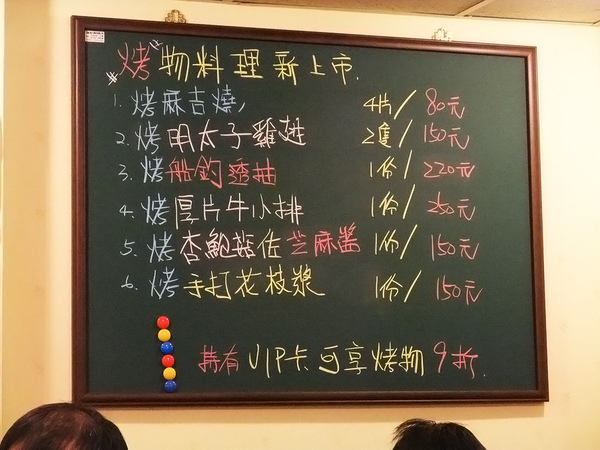 烤物料理新上市.
1. 烤麻吉燒 4片/80元
2. 烤明太子雞翅 2隻/150元
3. 烤船釣透抽 1份/220元
4. 烤厚片牛小排 1份/250元
5. 烤杏鮑菇佐芝麻醬 1份/150元
6. 烤手打花枝漿 1份/150元
持有VIP卡可享烤物9折.